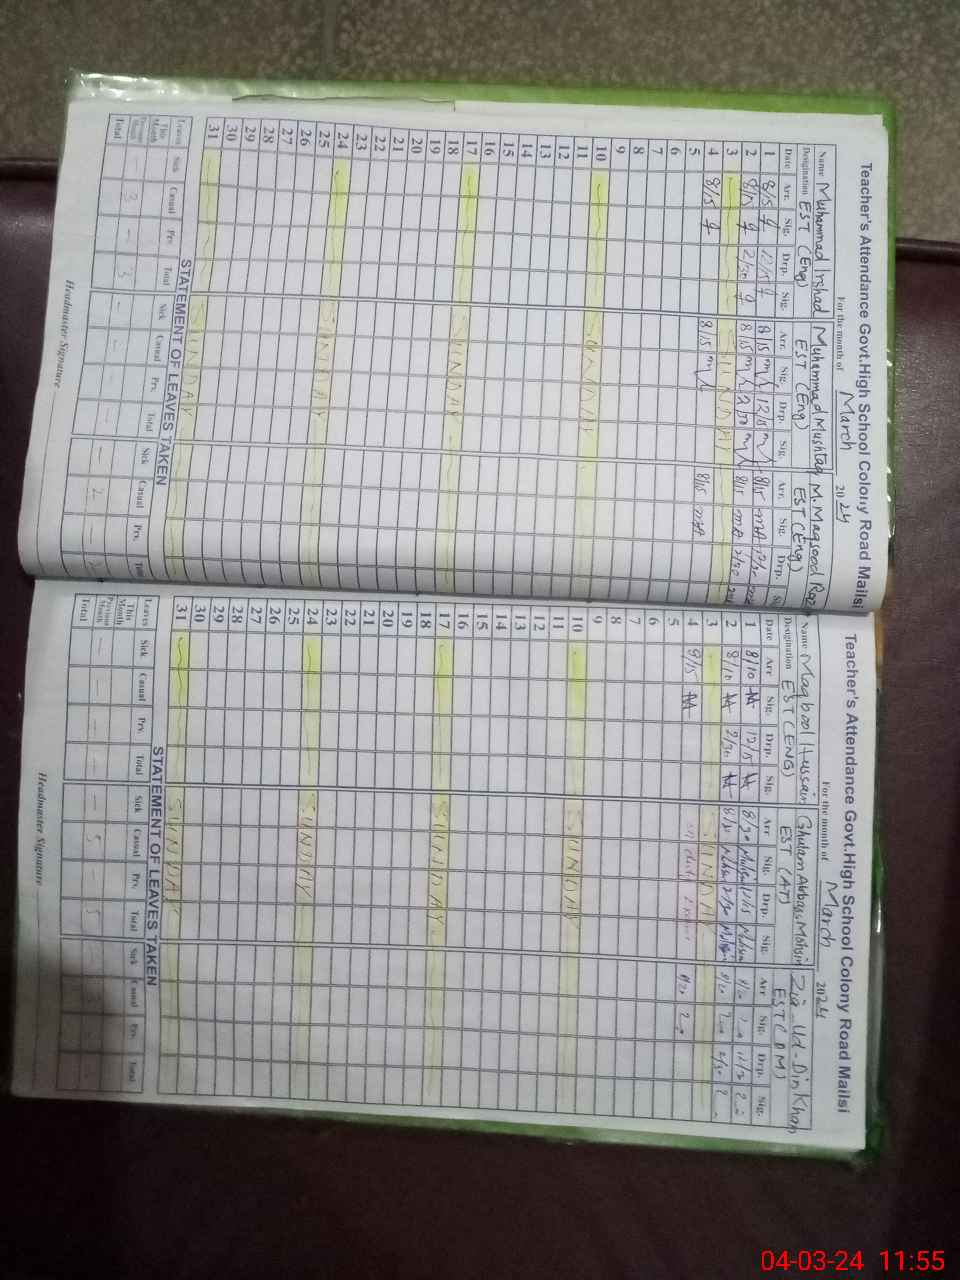 Teacher's Attendance Govt.High School Colony Road Mailsi
For the month of March 2024
Name Muhammad Irshad Muhammad Mushtaq M. Maqsood Raza
Designation EST (Eng) EST (Eng) EST (Eng)
Date Arr. Sig. Drp. Sig. Arr. Sig. Drp. Sig. Arr. Sig. Drp. Si
1 8/15 12/15 8/15 12/15 8/15 12/
2 8/15 2/30 8/15 2/30 8/15 2/30
3 SUNDAY
4 8/15 8/15 8/15
5
6
7
8
9
10 SUNDAY
11
12
13
14
15
16
17 SUNDAY
18
19
20
21
22
23
24 SUNDAY
25
26
27
28
29
30
31 SUNDAY
STATEMENT OF LEAVES TAKEN
Leaves Sick Casual Prv. Total Sick Casual Prv. Total Sick Casual Prv. Total
This Month
Previous Month - 3 - 3 - - - - - 2
Total
Headmaster Signature
Teacher's Attendance Govt.High School Colony Road Mailsi
For the month of March 2024
Name Maqbool Hussain Ghulam Abbas Mohsin Zia-Ud-Din Khan
Designation EST (ENG) EST (AT) EST (DM)
Date Arr Sig. Drp. Sig. Arr Sig. Drp. Sig. Arr Sig. Drp. Sig.
1 8/10 12/15 8/30 Mohsin 12/15 Mohsin 8/20
2 8/10 2/30 8/30 Mohsin 2/30 Mohsin 8/20 2/30
3 SUNDAY
4 9/15 on duty 8/20
5
6
7
8
9
10 SUNDAY
11
12
13
14
15
16
17 SUNDAY
18
19
20
21
22
23
24 SUNDAY
25
26
27
28
29
30
31 SUNDAY
STATEMENT OF LEAVES TAKEN
Leaves Sick Casual Prv. Total Sick Casual Prv. Total Sick Casual Prv. Total
This Month
Previous Month - - - - - 5 - 5
Total
Headmaster Signature
04-03-24 11:55